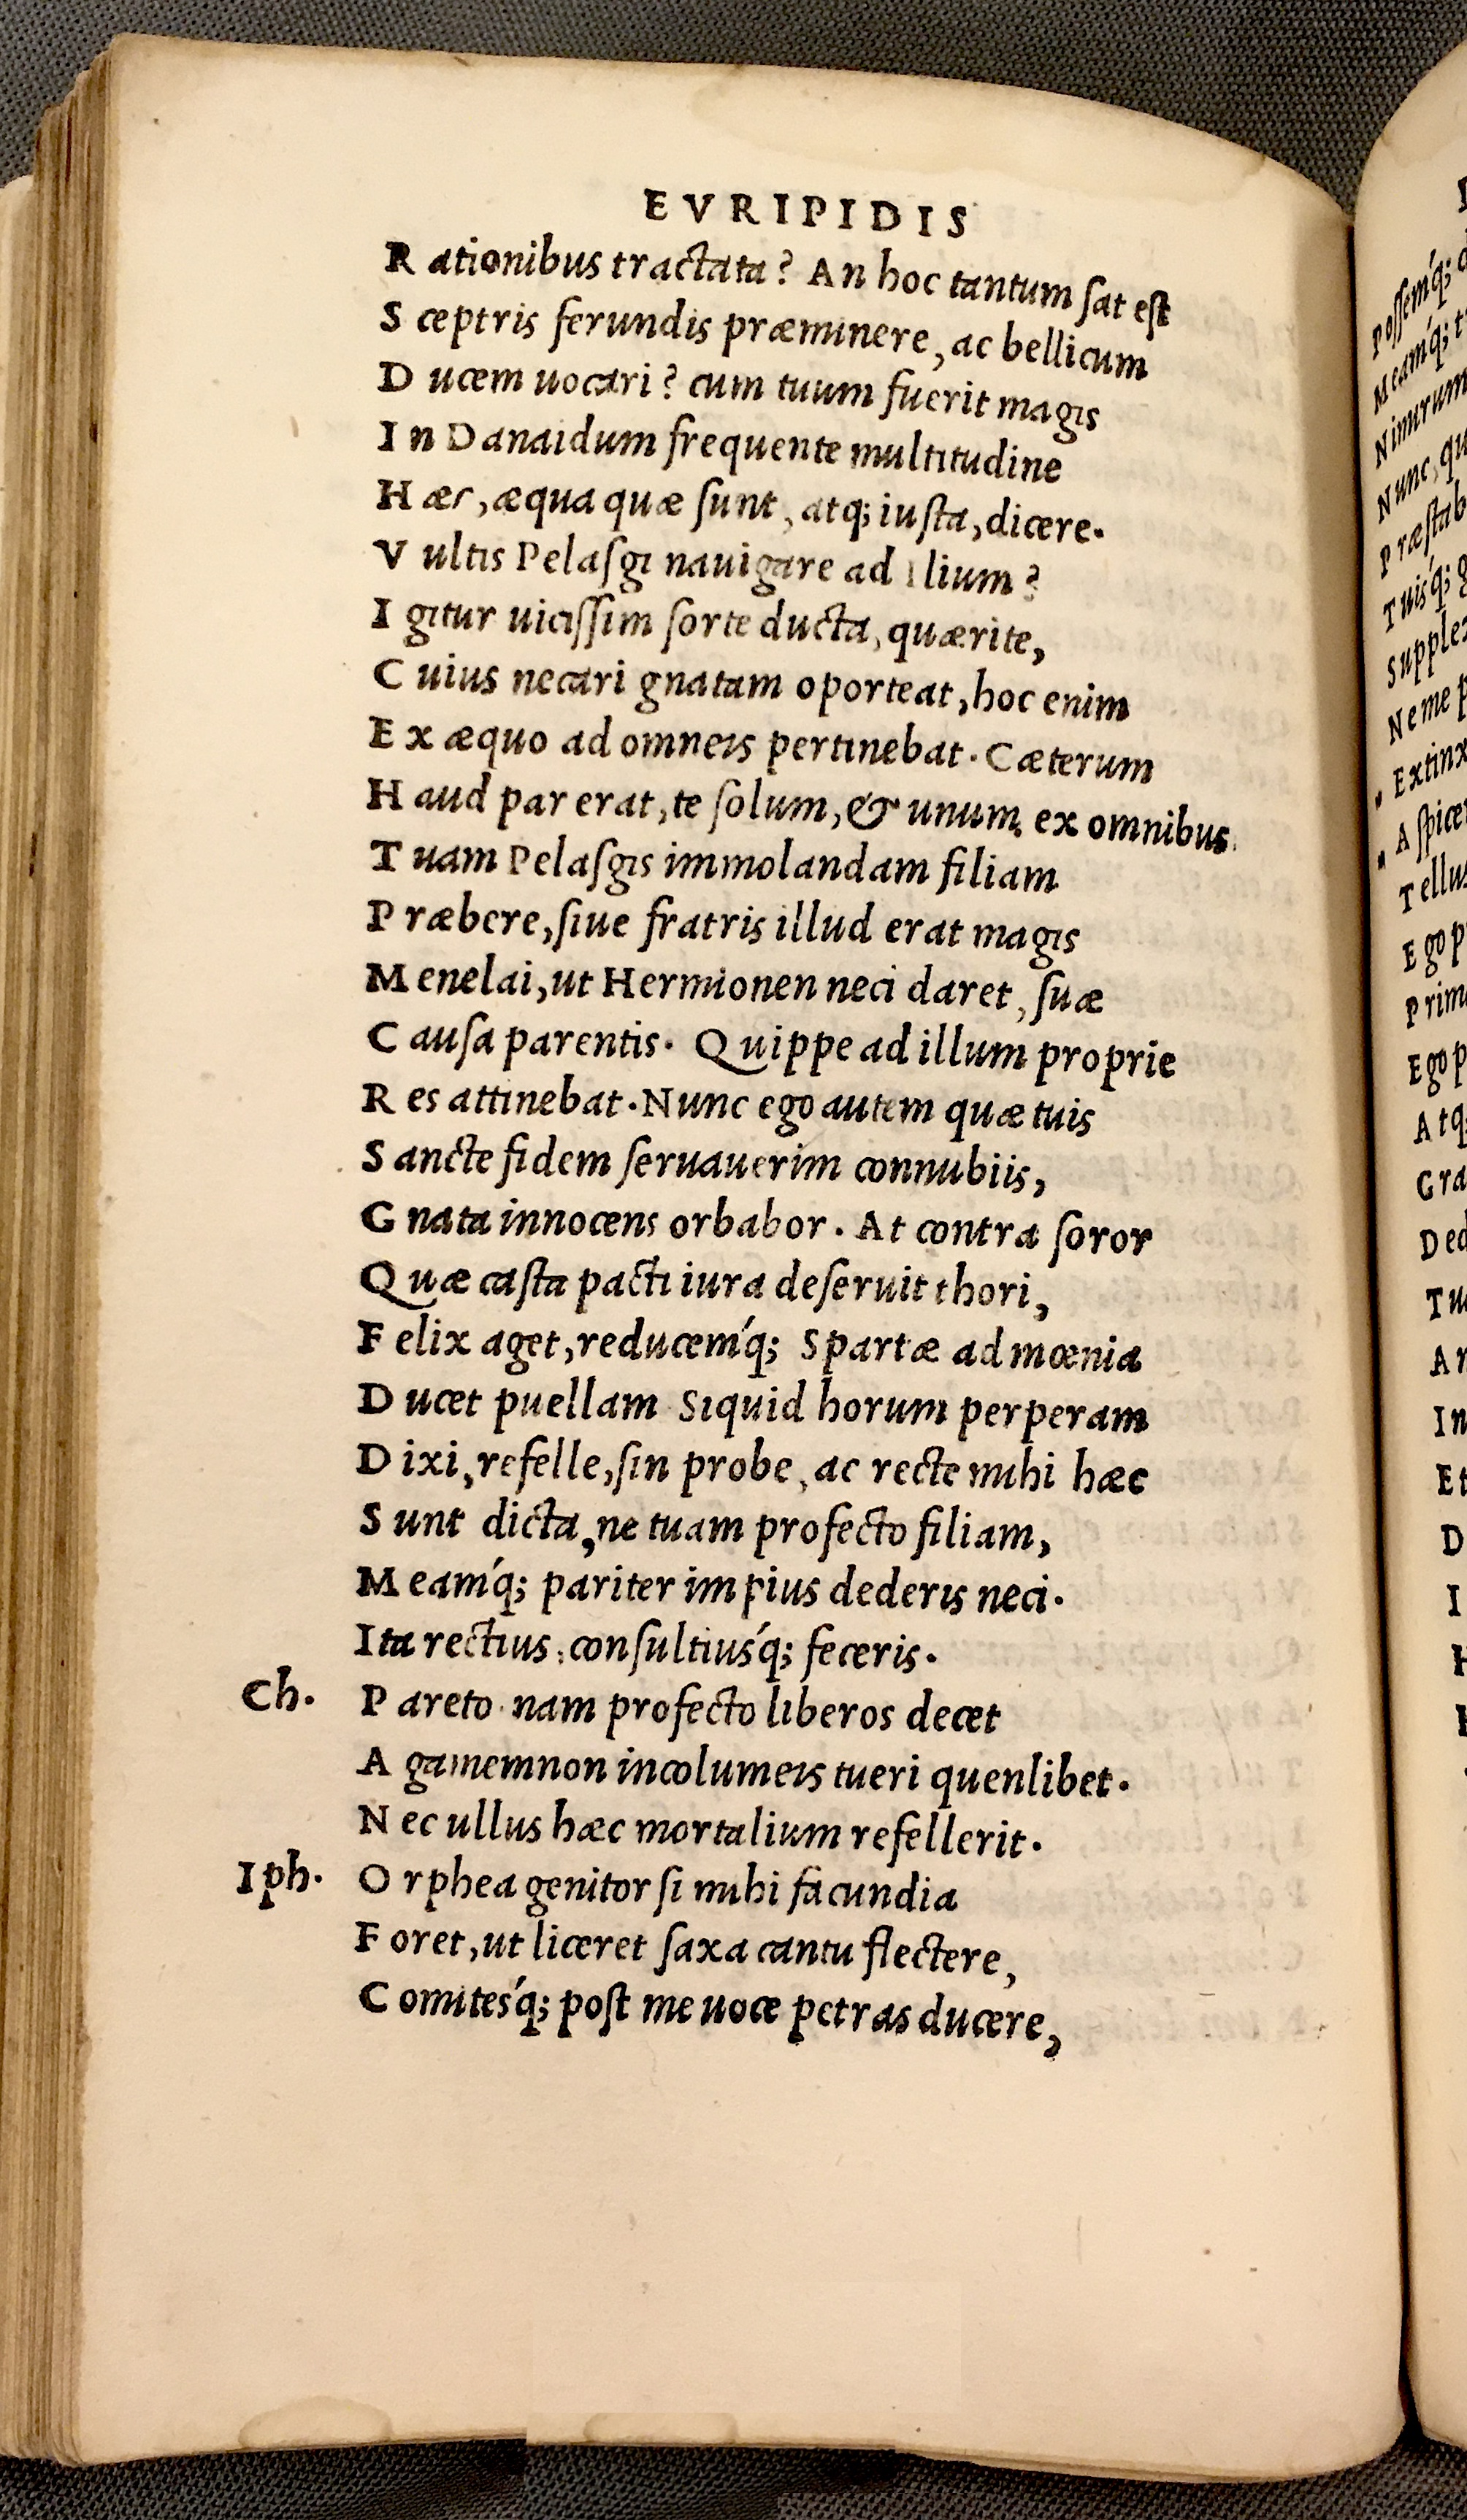 EVRIPIDIS
Rationibus tractata? An hoc tantum ſat eſt
Sceptris ferundis præminere, ac bellicum
Ducem uocari? cum tuum fuerit magis
In Danaidum frequente multitudine
Hæc, æqua quæ ſunt, atq; iuſta, dicere.
Vultis Pelaſgi nauigare ad Ilium?
Igitur uiciſſim ſorte ducta, quærite,
Cuius necari gnatam oporteat, hoc enim
Ex æquo ad omneis pertinebat. Cæterum
Haud par erat, te ſolum, & unum ex omnibus
Tuam Pelaſgis immolandam filiam
Præbere, ſiue fratris illud erat magis
Menelai, ut Hermionen neci daret, ſuæ
Cauſa parentis. Quippe ad illum proprie
Res attinebat. Nunc ego autem quæ tuis
Sancte fidem ſeruauerim connubiis,
Gnata innocens orbabor. At contra ſoror
Quæ caſta pacti iura deſeruit thori,
Felix aget, reduceḿq; Spartæ ad mœnia
Ducet puellam Siquid horum perperam
Dixi, refelle, ſin probe, ac recte mihi hæc
Sunt dicta, ne tuam profecto filiam,
Meaḿq; pariter impius dederis neci.
Ita rectius, conſultiuśq; feceris.
Ch. Pareto. nam profecto liberos decet
Agamemnon incolumeis tueri quenlibet.
Nec ullus hæc mortalium refellerit.
Iph. Orphea genitor ſi mihi facundia
Foret, ut liceret ſaxa cantu flectere,
Comiteśq; poſt me uoce petras ducere,
Poſſeḿq;
Meaḿq;
Nimirum
Nunc, qu
Præſtab
Tuiśq; g
Supplex
Ne me p
" Extinx
" Aſpicer
Tellus
Ego p
Prim
Ego p
Atq;
Gra
Ded
Tu
Ar
In
Et
D
I